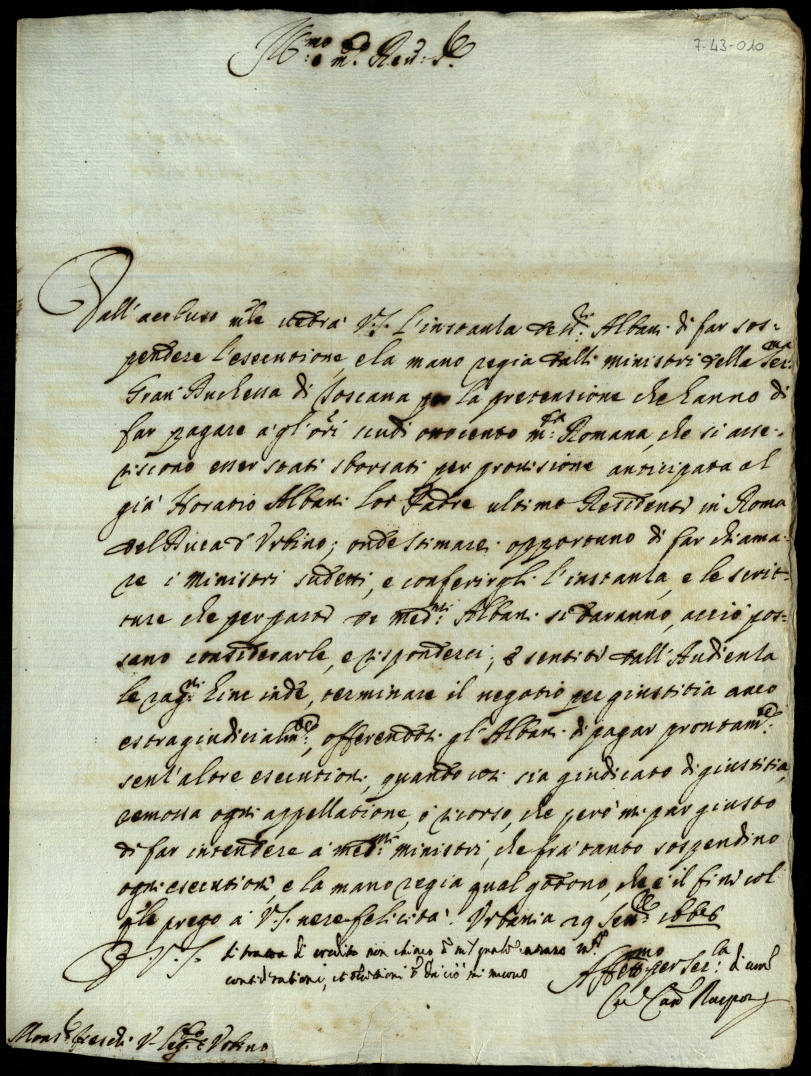 7-43-010
Ill:mo e m.o Reu: S.re
Dall' accluso m'le uedrà V.S. l'instanza de SS.ri Albani di far sos=
pendere l'esecutione, e la mano regia dalli ministri della Ser:ma
Gran Duchessa di Toscana per la pretensione che hanno di
far pagare à gl' ori scudi ottocento m:ta Romana, che si asse=
riscono esser stati sborsati per prouisione anticipata al
già Horatio Albani lor Padre ultimo Residente in Roma
del Duca d' Urbino; onde stimarei opportuno di far chiama=
re i Ministri sudetti, e conferirgli l'instanza, e le scrit=
ture che per parte de med:mi Albani si daranno, acciò pos=
sano considerarle, e rispondere; e sentite dall' Audienza
le rag:ni hinc inde, terminare il negotio per giustitia anco
estragiudicialm:te, offerendosi gl' Albani di pagar prontam:te
senz' altre esecutioni, quando così sia giudicato di giustitia,
remossa ogni appellatione, ò ricorso, che però mi par giusto
di far intendere à med:mi ministri, che frà tanto sospendino
ogni esecutione, e la mano regia qual godono, che è il fine col
q'le prego à V.S. uere felicità. Urbania 29 Sett:re 1666
D. V. S. si tratta di credito non chiaro
considerationi, et mi muouo
Aff.mo per ser:la di core
Card. Rasponi
Mons.r V. Leg:to d'Urbino